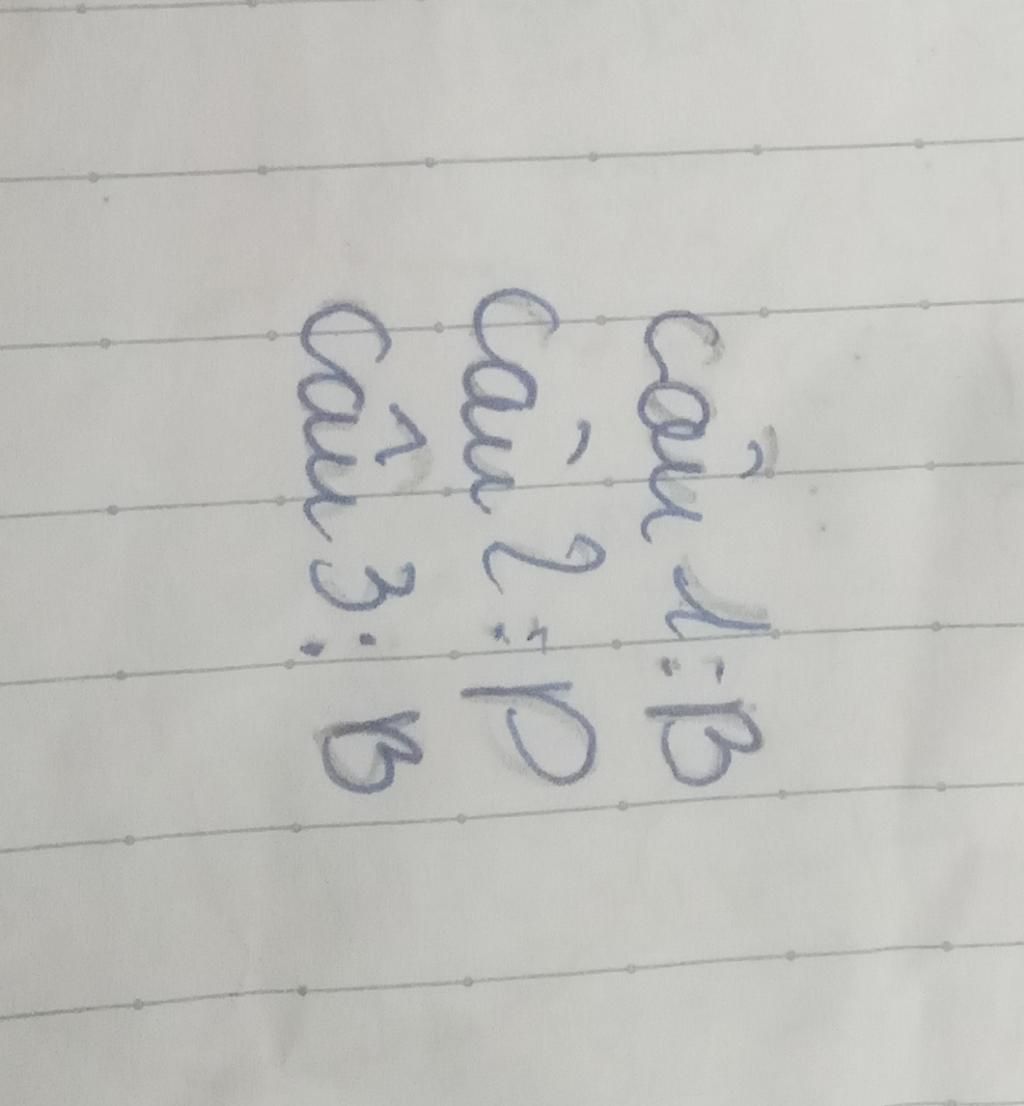 Câu 1: B
Câu 2: D
Câu 3: B